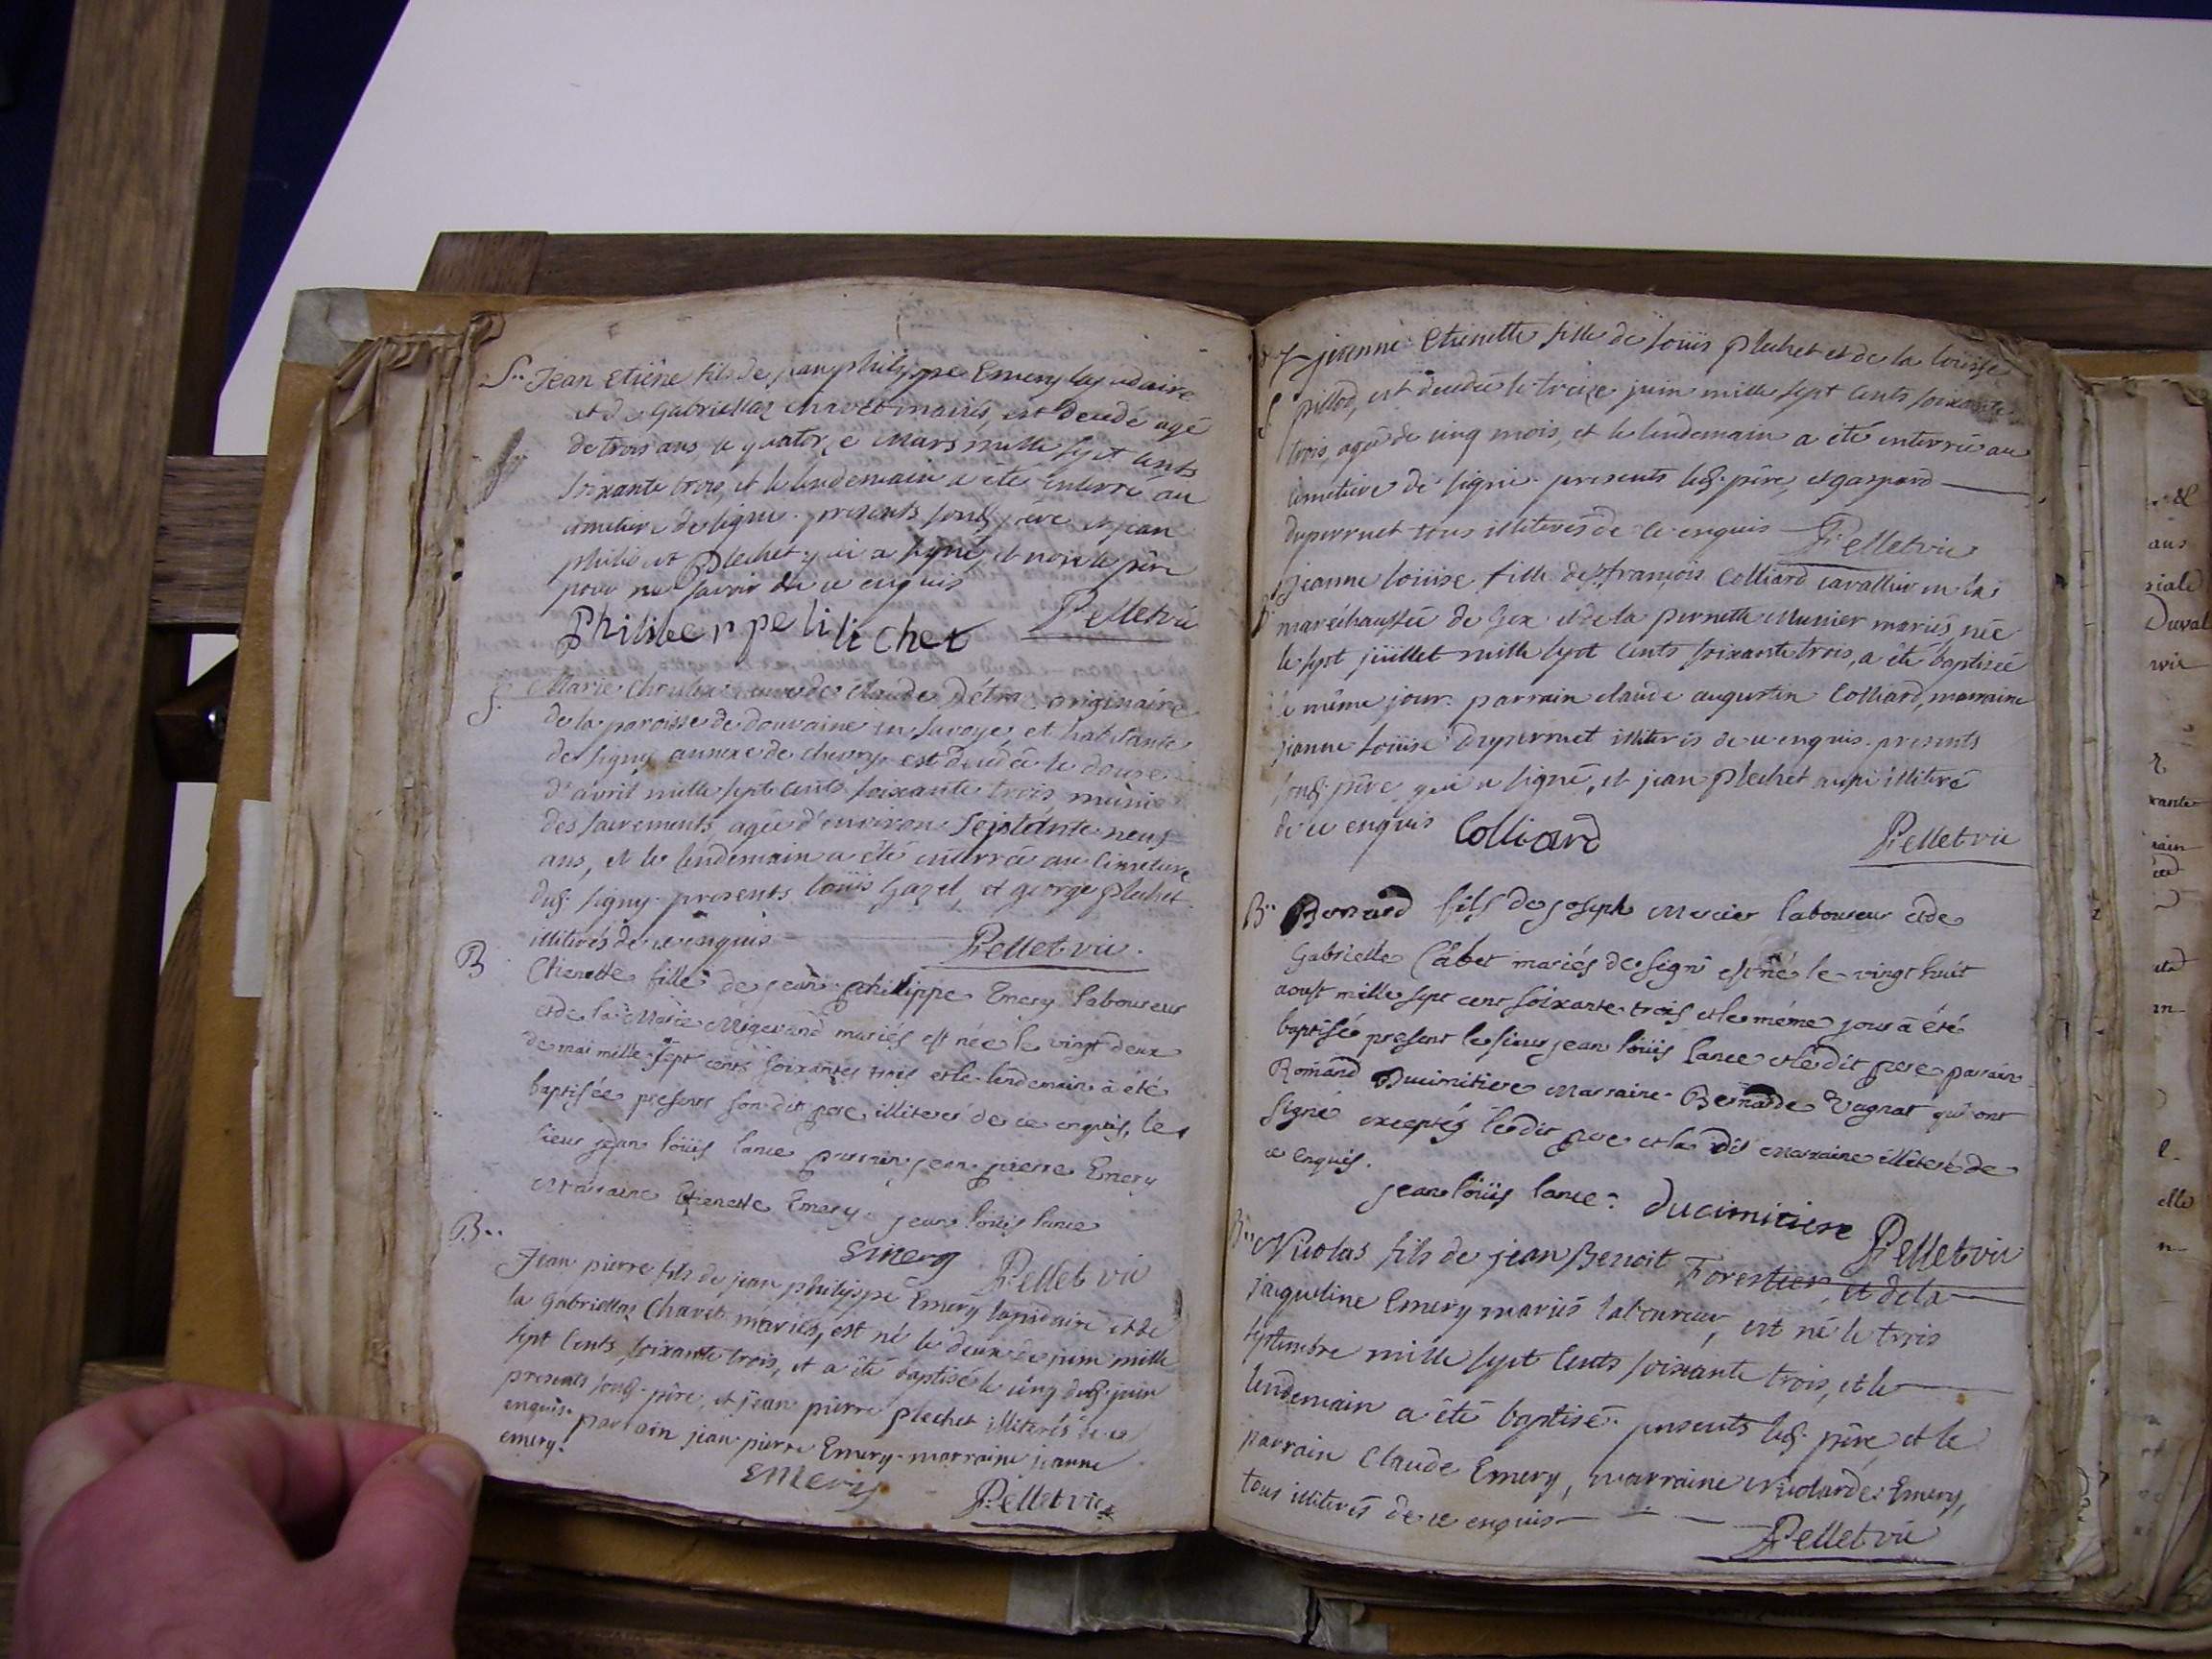 S.. Jean Etiéne fils de jean philippe Emery lapidaire
et de Gabriellaz chavet mariés, est decedé agé
de trois ans, le quatorze Mars mille sept cents
soixante trois, et le lendemain a été enterré au
cimetiere de signi. presents sond. pere et jean
philibert Plechet qui a signé, et non le père
pour ne savoir de ce enquis
Philiber pelilichet Pellet vic
S. Marie veuve de Claude Détra originaire
de la paroisse de douvaine en Savoye, et habitante
de signy annexe de chevry est decedée le douze
d'avril mille sept cents soixante trois, munie
des sacrements, agée d'environ septante neuf
ans, et le lendemain a été enterrée au cimetiere
dud. signy. presents louis Gazel, et george Plechet
illiterés de ce enquis Pellet vic.
B Etienette fille de jean philippe Emery laboureur
et de la Marie Migevand mariés est née le vingt deux
de mai mille sept cents soixantes trois et le lendemain à été
baptisée presents son dit pere illiteré de ce enquis, le
sieur jean loüis lance parrain jean pierre Emery
Marraine Etienette Emery. jean loüis lance
Emery Pellet vic
B.. Jean pierre fils de jean philippe Emery lapidaire et de
la Gabriellaz Chavet mariés, est né le deux de juin mille
sept cents soixante trois, et a été baptisé le cinq dud. juin
presents sond. père, et jean pierre plechet illiterés de ce
enquis. parrain jean pierre Emery. marraine jeanne
emery.
Emery Pellet vic
jeanne Etienette fille de loüis Plechet et de la loüise
S pillod, est decedée le treize juin mille sept cents soixante
trois, agée de cinq mois, et le lendemain a été enterrée au
cimetiere de signi. presents led. père, et gaspard
duperruet tous illiterés de ce enquis Pellet vic
B.. Jeanne loüise fille de françois Colliard cavallier en la
maréchaussée de Gex et de la pernette Munier mariés, née
le sept juillet mille sept cents soixante trois, a été baptisée
le même jour. parrain claude augustin Colliard, marraine
jeanne loüise Duperruet illiterés de ce enquis. presents
sond. père qui a signé, et jean Plechet aussi illiteré
de ce enquis Colliard Pellet vic
B.. Bernard fils de joseph Mercier laboureur et de
Gabrielle Cabet mariés de signi est né le vingt huit
aoust mille sept cent soixante trois et le méme jour à été
baptisé present le sieur jean loüis lance et le dit pere parain
Romand Ducimitiere Marraine Bernarde Vagnat qui ont
signé exceptés le dit pere et la dit Marraine illiteré de
ce enquis.
jean loüis lance: ducimitiere Pellet vic
B.. Nicolas fils de jean Benoit Forestier, et de la
jaqueline Emery mariés laboureur, est né le trois
septembre mille sept cents soixante trois, et le
lendemain a été baptisé. presents led. père, et le
parrain Claude Emery, marraine Nicolarde Emery,
tous illiterés de ce enquis Pellet vic